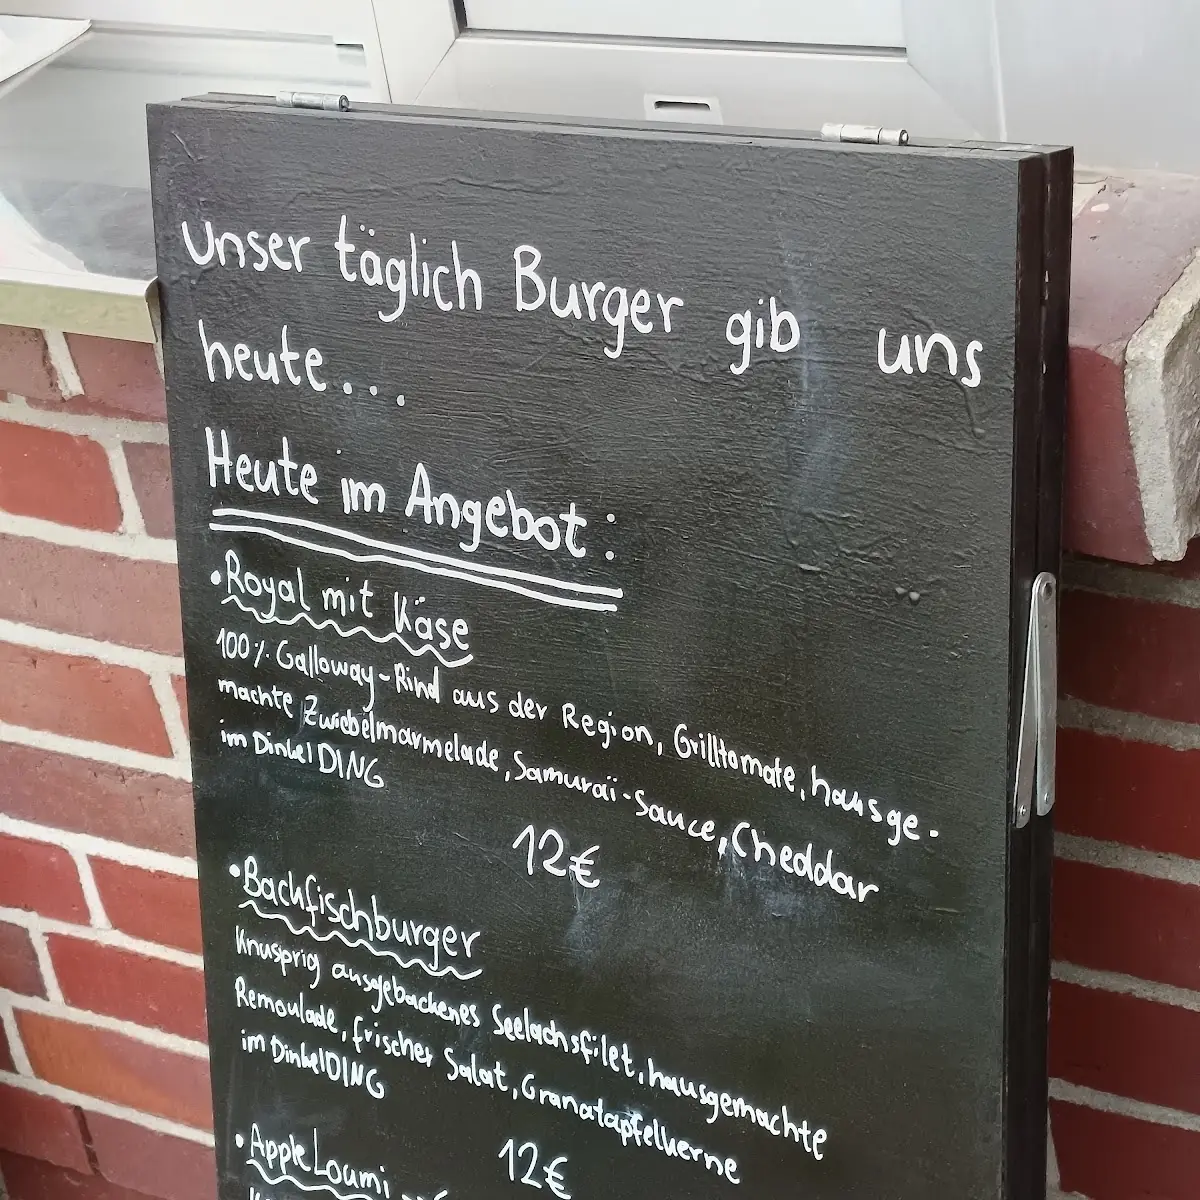 unser täglich Burger gib uns
heute...
Heute im Angebot:
• Royal mit Käse
100% Galloway-Rind aus der Region, Grilltomate, hausge-
machte Zwiebelmarmelade, Samuraï-Sauce, Cheddar
im Dinkel DING
12€
• Backfischburger
Knusprig ausgebackenes Seelachsfilet, hausgemachte
Remoulade, frischer Salat, Granatapfelkerne
im DinkelDING
12€
• Apple Loumi